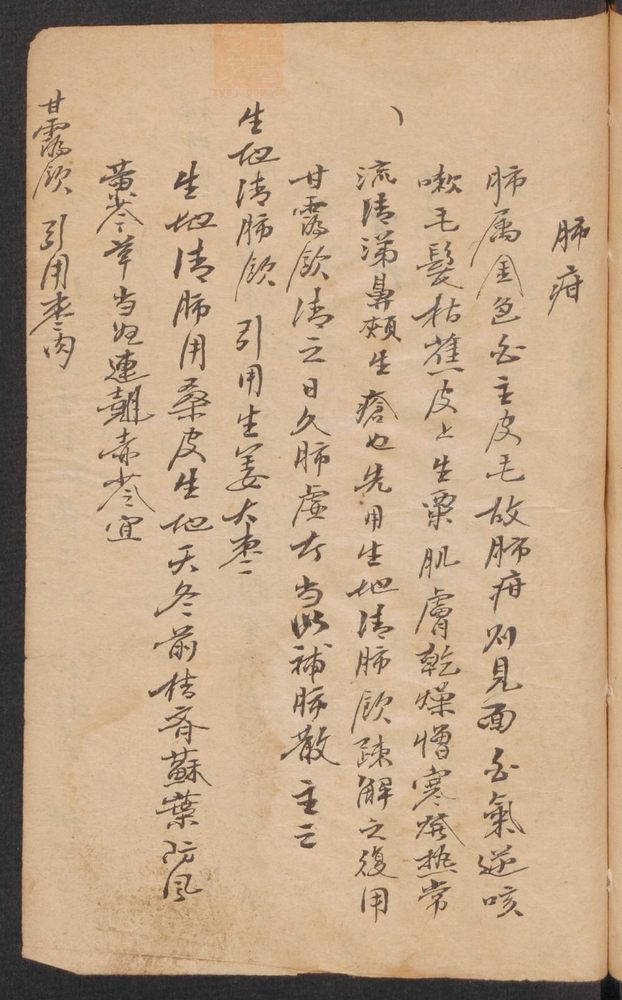 肺疳
肺属金色白主皮毛故肺疳则見面白氣逆咳
嗽毛髮枯蕉皮上生粟肌膚乾燥憎寒發热常
流清涕鼻頰生瘡也先用生地清肺飲踈解之復用
甘露飲清之日久肺虛者当以補肺散主之
生地清肺飲 引用生姜大枣
生地清肺用桑皮生地天冬前桔齊蘇葉防风
黄芩草当归連翹赤苓宜
甘露飲 引用枣肉